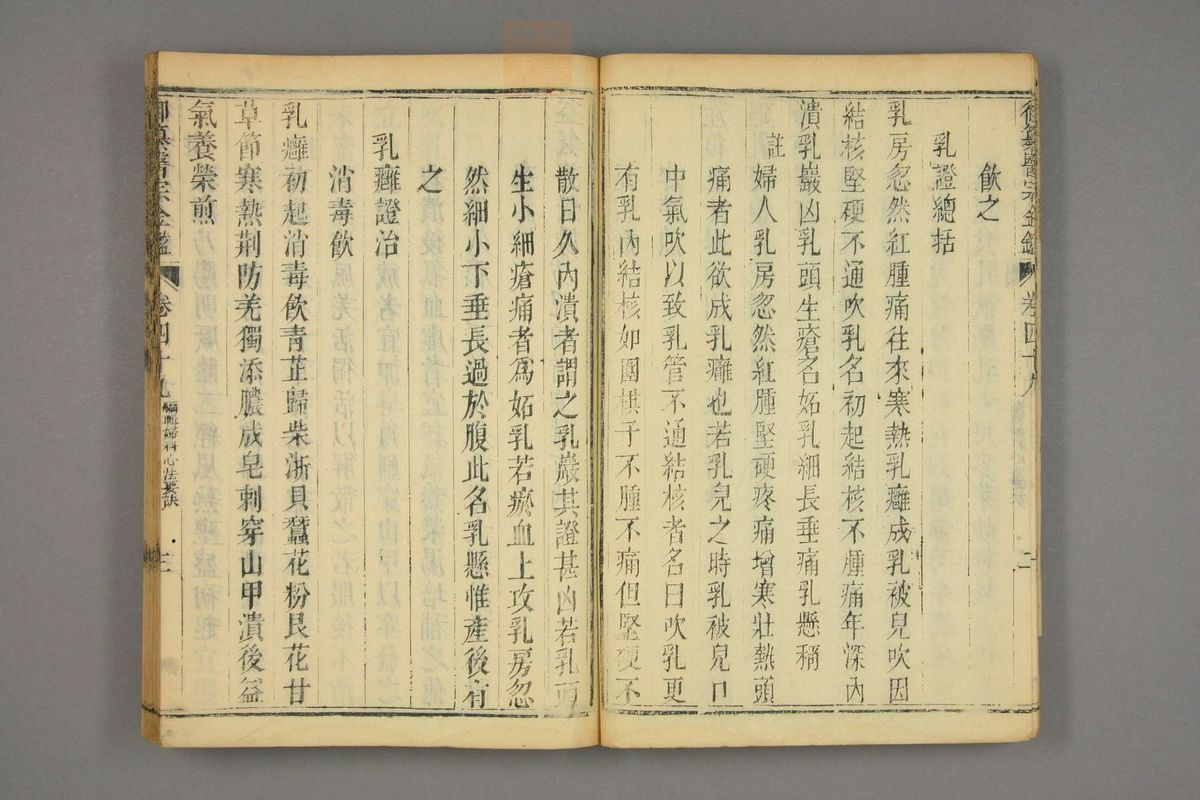 御纂醫宗金鑑 卷四十九 二
飲之
乳證總括
乳房忽然紅腫痛往來寒熱乳癰成乳被兒吹因
結核堅硬不通吹乳名初起結核不腫痛年深內
潰乳巖凶乳頭生瘡名妬乳細長垂痛乳懸稱
註婦人乳房忽然紅腫堅硬疼痛增寒壯熱頭
痛者此欲成乳癰也若乳兒之時乳被兒口
中氣吹以致乳管不通結核者名曰吹乳更
有乳內結核如圍棋子不腫不痛但堅硬不
散日久內潰者謂之乳巖其證甚凶若乳頭
生小細瘡痛者為妬乳若瘀血上攻乳房忽
然細小下垂長過於腹此名乳懸惟產後有
之
乳癰證治
消毒飲
乳癰初起消毒飲青芷歸柴浙貝蠶花粉艮花甘
草節寒熱荊防羌獨添膿成皂刺穿山甲潰後益
氣養榮煎
御纂醫宗金鑑 卷四十九 編輯婦科心法要訣 三